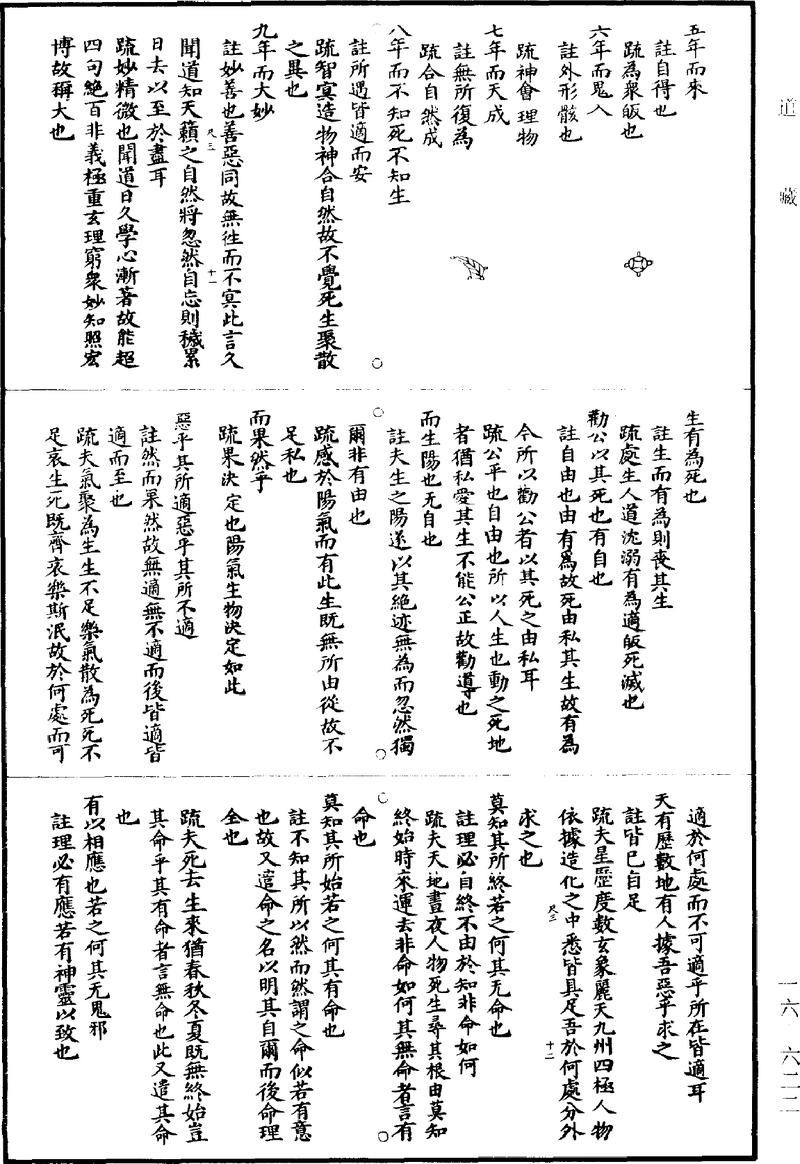 道藏
五年而來
註自得也
䟽為衆皈也
六年而鬼入
註外形骸也
䟽神會理物
七年而天成
註無所復為
䟽合自然成
八年而不知死不知生
註所遇皆適而安
䟽智㝠造物神合自然故不覺死生聚散
之異也
九年而大妙
註妙善也善惡同故無徃而不㝠此言久
聞道知天籟之自然將忽然自忘則穢累
日去以至於盡耳
䟽妙精微也聞道日久學心漸著故能超
四句絶百非義極重玄理窮衆妙知照宏
博故稱大也
尺三
十一
生有為死也
註生而有為則喪其生
䟽處生人道沈溺有為適皈死滅也
勸公以其死也有自也
註自由也由有為故死由私其生故有為
今所以勸公者以其死之由私耳
䟽公平也自由也所以人生也動之死地
者猶私愛其生不能公正故勸導也
而生陽也无自也
註夫生之陽遂以其絶迹無為而忽然獨
爾非有由也
䟽感於陽氣而有此生既無所由從故不
足私也
而果然乎
䟽果決定也陽氣生物決定如此
惡乎其所適惡乎其所不適
註然而果然故無適無不適而後皆適皆
適而至也
䟽夫氣聚為生生不足樂氣散為死死不
足哀生死既齊哀樂斯泯故於何處而可
適於何處而不可適乎所在皆適耳
天有歷數地有人據吾惡乎求之
註皆已自足
䟽夫星歷度數玄象麗天九州四極人物
依據造化之中悉皆具足吾於何處分外
求之也
尺三
十二
莫知其所終若之何其无命也
註理必自終不由於知非命如何
䟽夫天地晝夜人物死生尋其根由莫知
終始時來運去非命如何其無命者言有
命也
莫知其所始若之何其有命也
註不知其所以然而然謂之命似若有意
也故又遣命之名以明其自爾而後命理
全也
䟽夫死去生來猶春秋冬夏既無終始豈
其命乎其有命者言無命也此又遣其命
也
有以相應也若之何其无鬼邪
註理必有應若有神靈以致也
一六·六二二